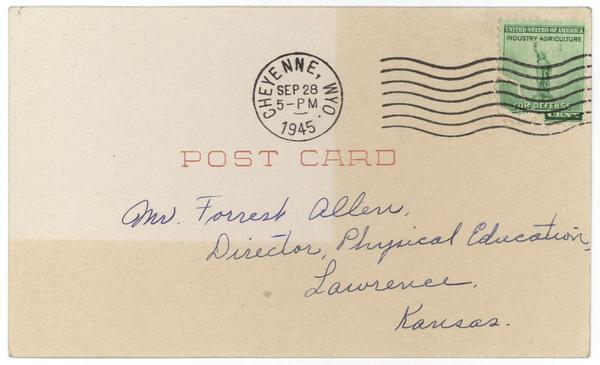 UNITED STATES OF AMERICA
INDUSTRY AGRICULTURE
FOR DEFENSE
CHEYENNE, WYO.
SEP 28
5-PM
1945
POST CARD
Mr. Forrest Allen,
Director, Physical Education,
Lawrence,
Kansas.